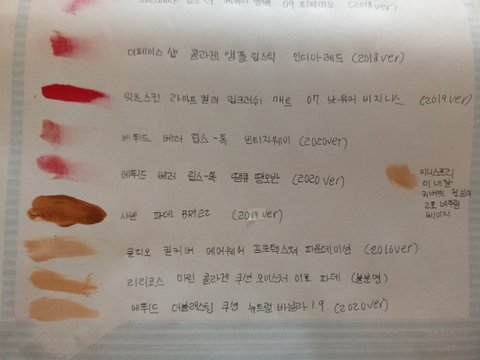 09 (2018 ver)
더페이스 샵 콜라겐 앰플 립스틱 인디아 레드 (2018 ver)
잇츠스킨 라이프 컬러 립크러쉬 매트 07 낫유어 비지니스 (2019 ver)
에뛰드 베러 립스-톡 빈티지웨이 (2020 ver)
에뛰드 베러 립스-톡 땡큐 땡모반 (2020 ver)
샤넬 파데 BR122 (2019 ver)
클리오 킬커버 에어웨어 프로텍스쳐 파운데이션 (2016 ver)
리리코스 마린 콜라겐 쿠션 모이스처 이포 파데 (불분명)
에뛰드 더블래스팅 쿠션 뉴트럴 바닐라 19 (2020 ver)
이니스프리
미네랄
커버픽 컨실러
2호 내추럴
베이지